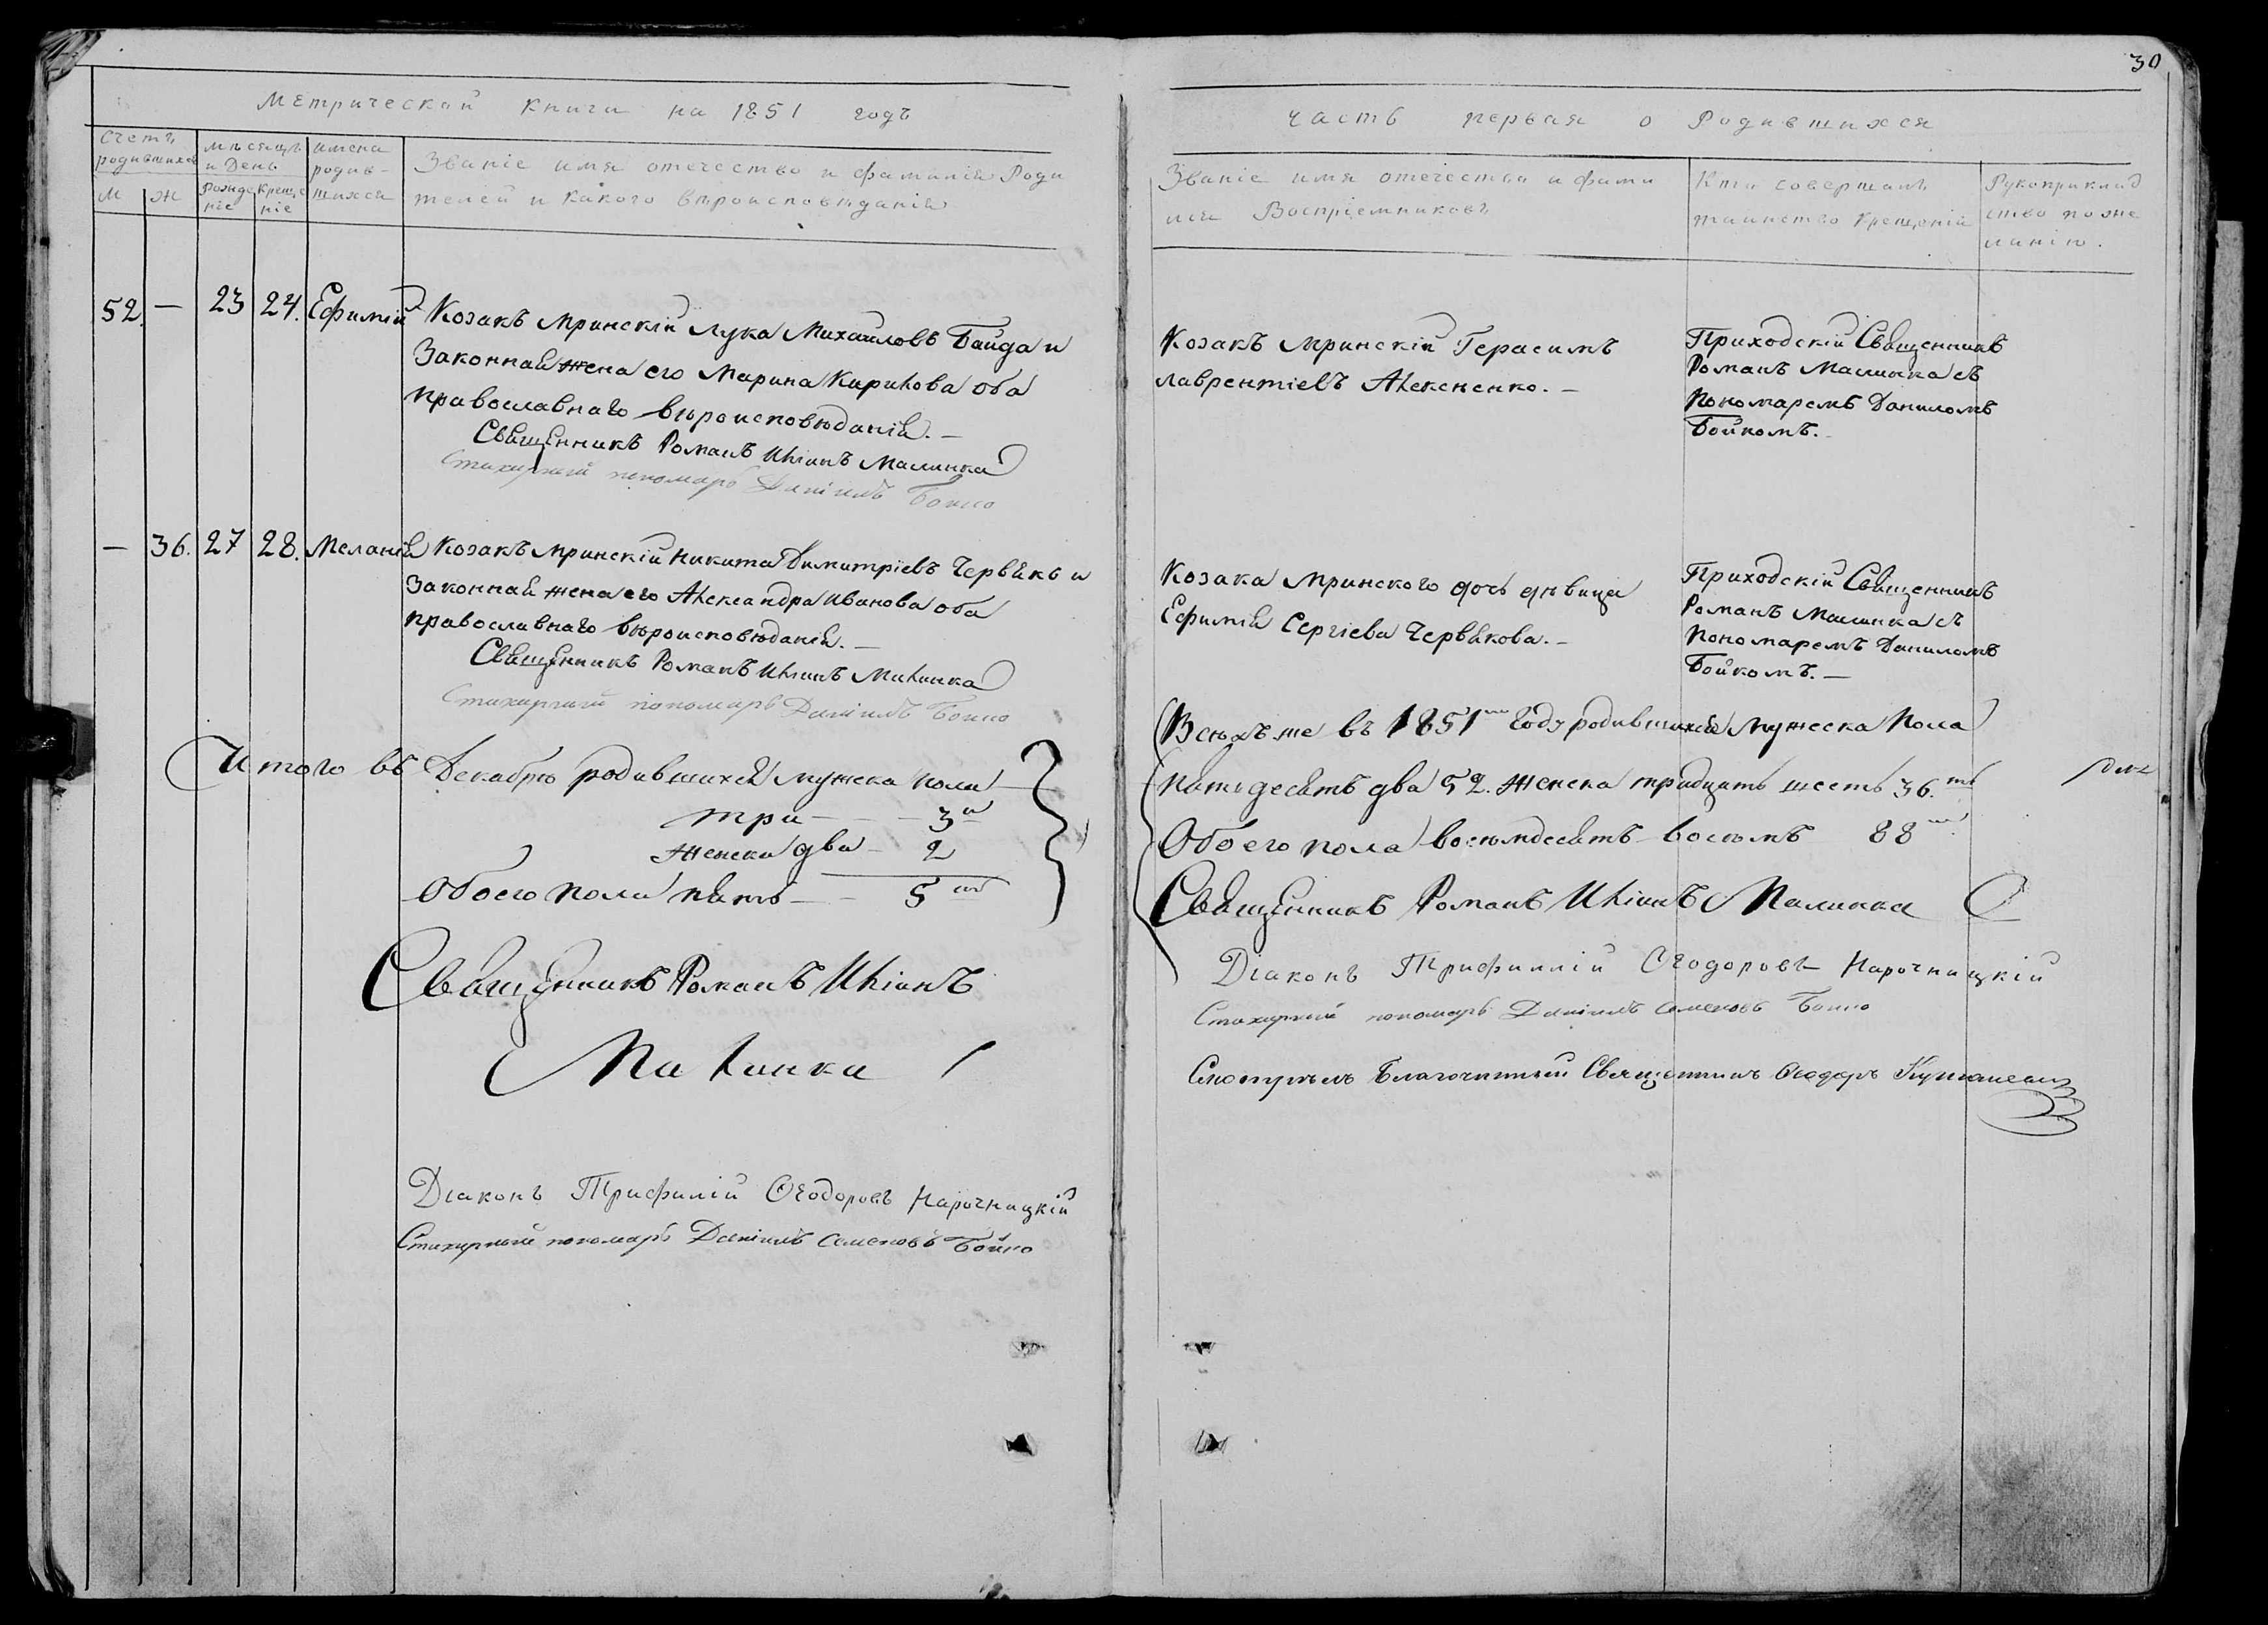 30
Метрической книги на 1851 годъ
Счетъ родившихся
М
Ж
мѣсяцъ и День
рожде ніе
креще ніе
имена родив- шихся
Званіе имя отечество и фамилія Роди
телей и какого вѣроисповѣданія
52. — 23 24. Ефимій Козакъ Мринскій Лука Михайловъ Байда и
Законная жена его Марина Кирилова оба
православнаго вѣроисповѣданія. —
Священникъ Романъ Иліинъ Малинка
Стихирный пономарь Даніилъ Бойко
— 36. 27 28. Меланія Козакъ Мринскій Никита Димитріевъ Червякъ и
Законная жена его Александра Иванова оба
православнаго вѣроисповѣданія. —
Священникъ Романъ Иліинъ Малинка
Стихирный пономарь Даніилъ Бойко
Итого въ Декабрѣ родившихся мужска пола —
три — — 3и
Женска два — 2
Обоего пола пять — — 5ть
Священникъ Романъ Иліинъ
Малинка
Діаконъ Трифилій Ѳеодоровъ Нарочницкій
Стихирный пономарь Даніилъ Семеновъ Бойко
часть первая о Родившихся
Званіе имя отечество и фами
лія Воспріемниковъ
Кто совершалъ
таинство крещенія
Рукоприклад
ство по же
ланію.
Козакъ Мринскій Герасимъ
Лаврентіевъ Алексѣенко. —
Приходскій Священникъ
Романъ Малинка съ
Пономаремъ Даниломъ
Бойкомъ. —
Козака Мринского дочь дѣвица
Ефимія Сергіева Червякова. —
Приходскій Священникъ
Романъ Малинка съ
Пономаремъ Даниломъ
Бойкомъ. —
Всѣхъ же въ 1851мъ Году родившихся Мужеска Пола
Пятьдесятъ два 52. Женска тридцать шесть 36.ть
Обоего пола восемдесятъ восемь 88
Священникъ Романъ Иліинъ Малинка
Діаконъ Трифиллій Ѳеодоровъ Нарочницкій
Стихирный пономарь Даніилъ Семеновъ Бойко
Благочинный Священникъ Ѳеодоръ